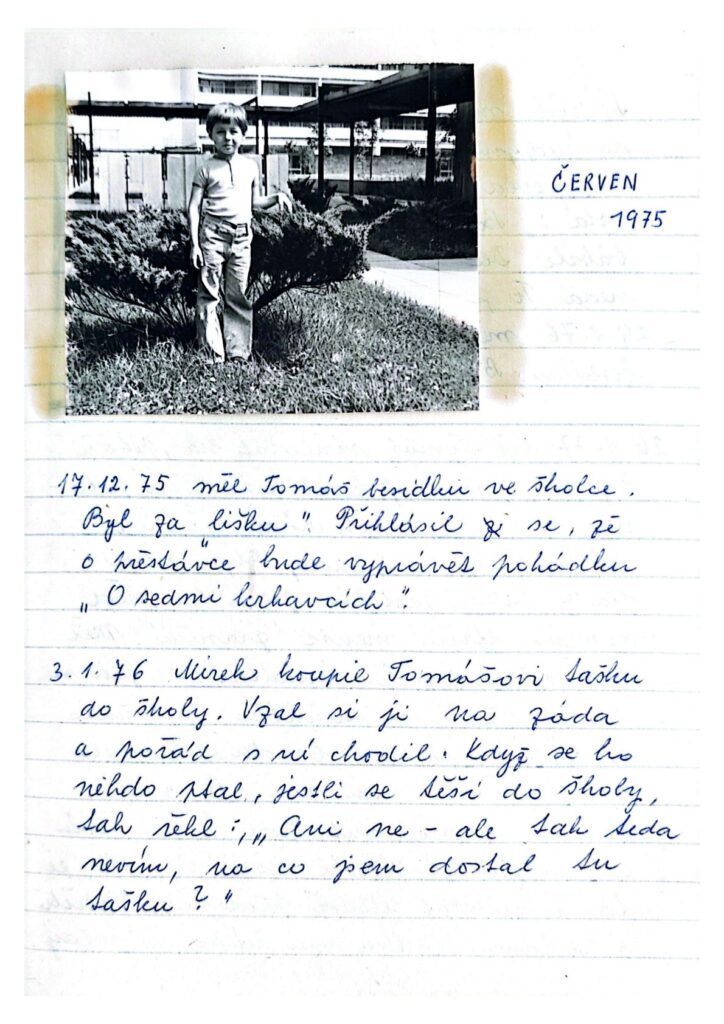 ČERVEN
1975
17.12.75 měl Tomáš besídku ve školce.
Byl za „lišku". Přihlásil se, že
o přestávce bude vyprávět pohádku
„O sedmi krkavcích".
3.1.76 Mirek koupil Tomášovi tašku
do školy. Vzal si ji na záda
a pořád s ní chodil. Když se ho
někdo ptal, jestli se těší do školy,
tak řekl: „Ani ne – ale tak teda
nevím, na co jsem dostal tu
tašku?"